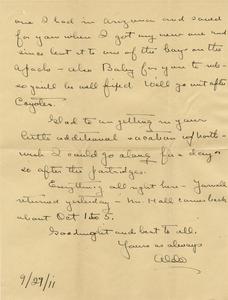 one I had in Arizona and saved
for you when I got my new one and
since lent it to one of the boys on the
Apache - also Baby for you to
so you'll be well fixed. We'll go out after
Coyotes.
Glad to
little additional vacation
wish I could go along for a day
or so after the partridges.
Everything all right here -
returned yesterday - Mr. Hall comes back
about Oct 1 to 5.
Goodnight and best to all.
Yours as always
Aldo
9/29/11